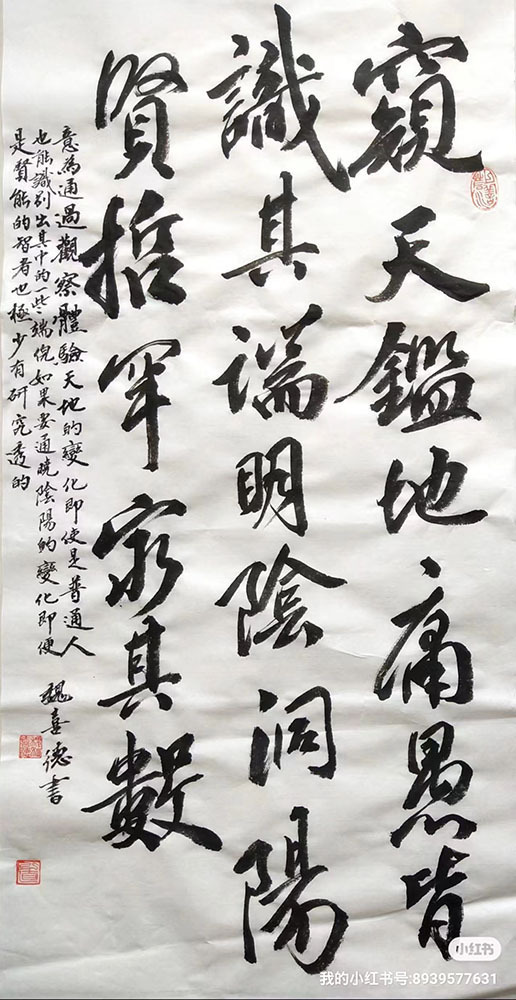 窺天鑑地庸愚皆
識其端明陰洞陽
賢哲罕窮其數
意為通過觀察體驗天地的變化即使是普通人
也能識别出其中的一些端倪如果要通曉陰陽的變化即便
是賢能的智者也極少有研究透的
魏喜德書
小红书
我的小红书号:8939577631